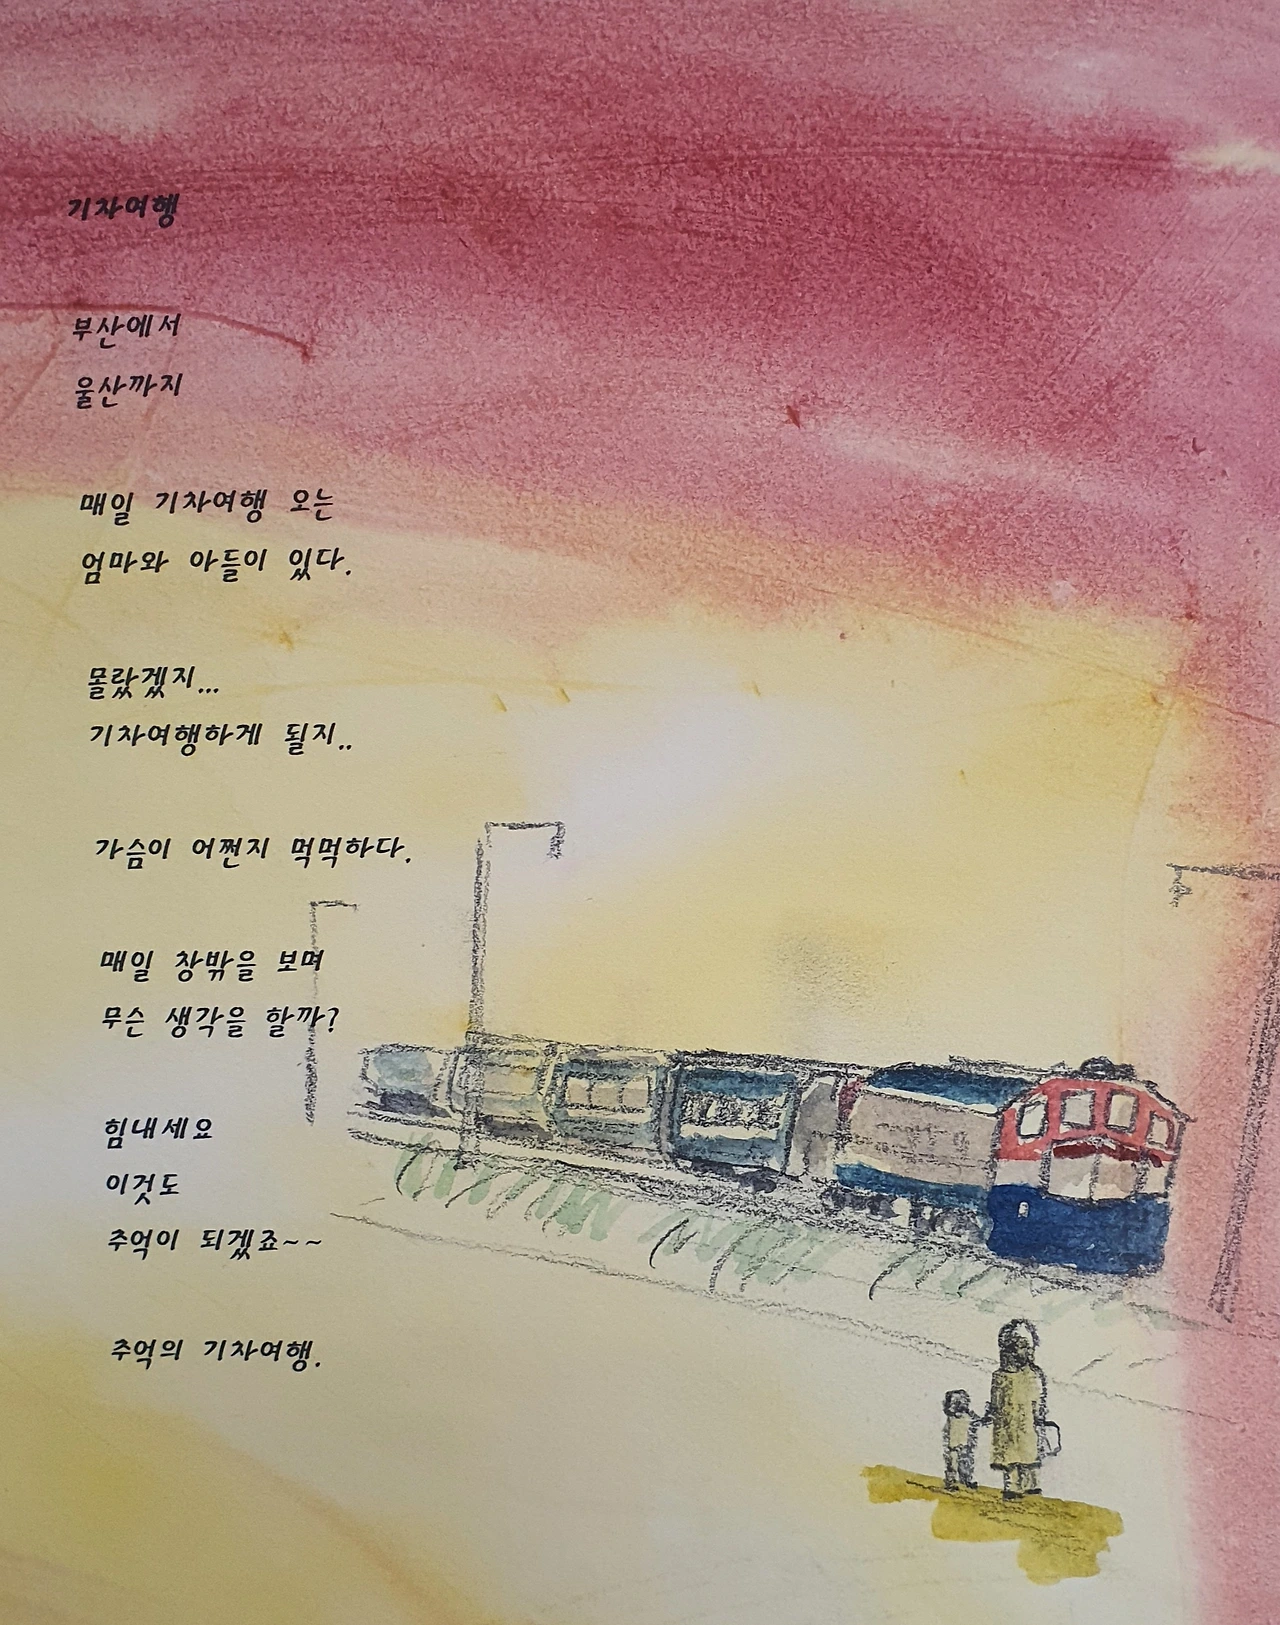 기차여행
부산에서
울산까지
매일 기차여행 오는
엄마와 아들이 있다.
몰랐겠지...
기차여행하게 될지..
가슴이 어쩐지 먹먹하다.
매일 창밖을 보며
무슨 생각을 할까?
힘내세요
이것도
추억이 되겠죠~~
추억의 기차여행.